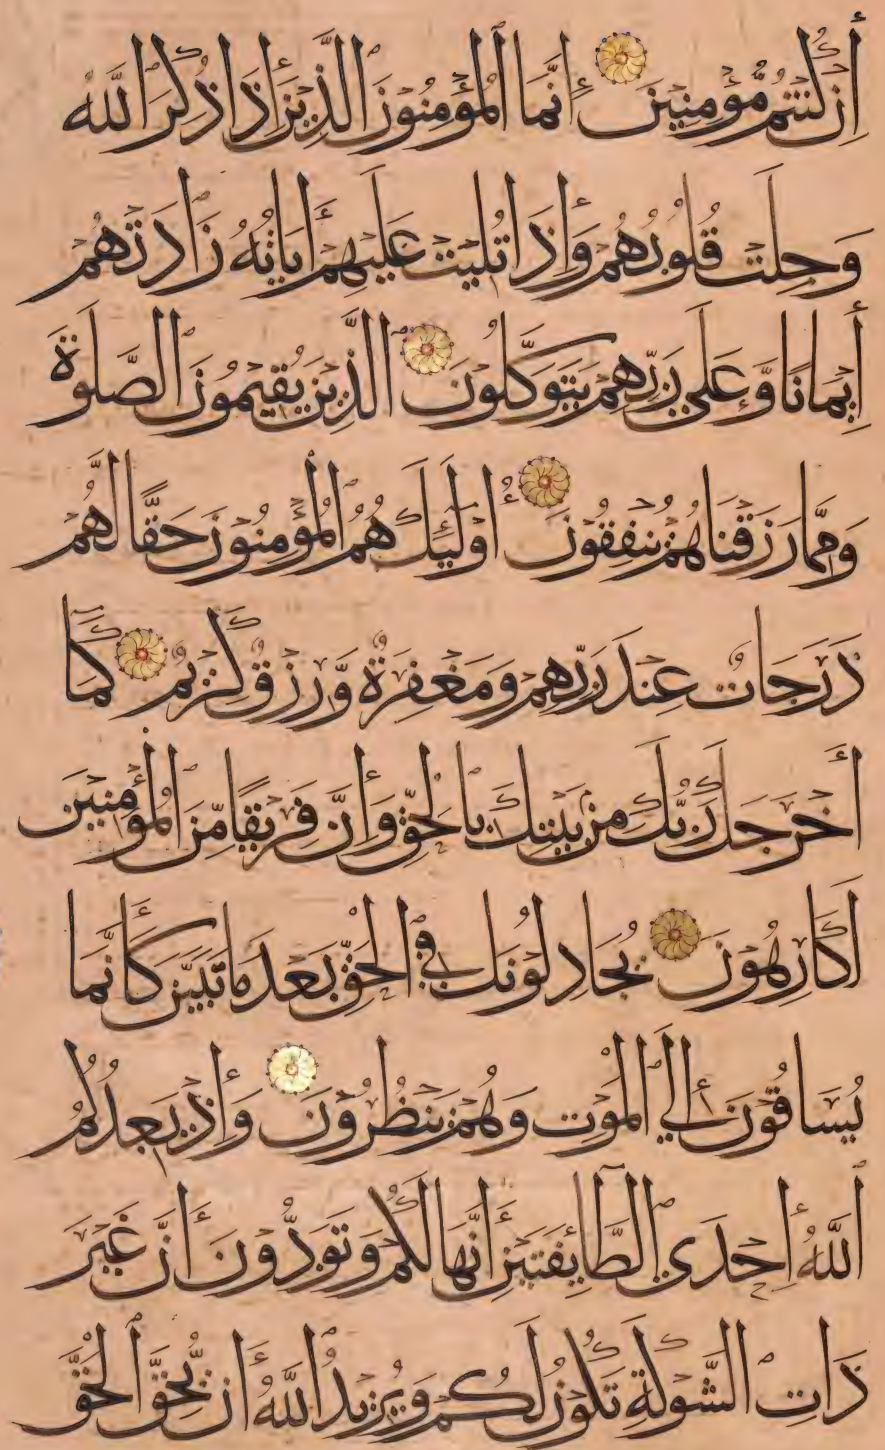 إِن كُنتُم مُّؤْمِنِينَ إِنَّمَا الْمُؤْمِنُونَ الَّذِينَ إِذَا ذُكِرَ اللَّهُ
وَجِلَتْ قُلُوبُهُمْ وَإِذَا تُلِيَتْ عَلَيْهِمْ أَيَاتُهُ زَادَتْهُمْ
إِيمَانًا وَعَلَى رَبِّهِمْ يَتَوَكَّلُونَ الَّذِينَ يُقِيمُونَ الصَّلَوةَ
وَمِمَّا رَزَقْنَاهُمْ يُنفِقُونَ أُوْلَئِكَ هُمُ الْمُؤْمِنُونَ حَقًّا لَّهُمْ
دَرَجَاتٌ عِندَ رَبِّهِمْ وَمَغْفِرَةٌ وَّرِزْقٌ كَرِيمٌ كَمَا
أَخْرَجَكَ رَبُّكَ مِن بَيْتِكَ بِالْحَقِّ وَإِنَّ فَرِيقًا مِّنَ الْمُؤْمِنِينَ
لَكَارِهُونَ يُجَادِلُونَكَ فِي الْحَقِّ بَعْدَ مَا تَبَيَّنَ كَأَنَّمَا
يُسَاقُونَ إِلَى الْمَوْتِ وَهُمْ يَنظُرُونَ وَإِذْ يَعِدُكُمُ
اللَّهُ إِحْدَى الطَّائِفَتَيْنِ أَنَّهَا لَكُمْ وَتَوَدُّونَ أَنَّ غَيْرَ
ذَاتِ الشَّوْكَةِ تَكُونُ لَكُمْ وَيُرِيدُ اللَّهُ أَن يُّحِقَّ الْحَقَّ